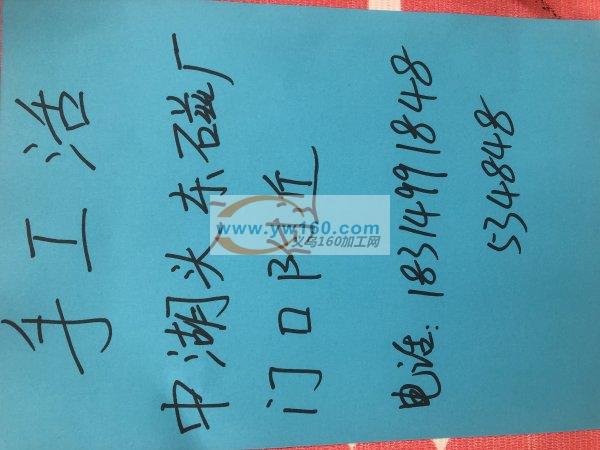 手工活
中湖头东磁厂
门口附近
电话:18314991848
534848
www.yw160.com
义乌160加工网